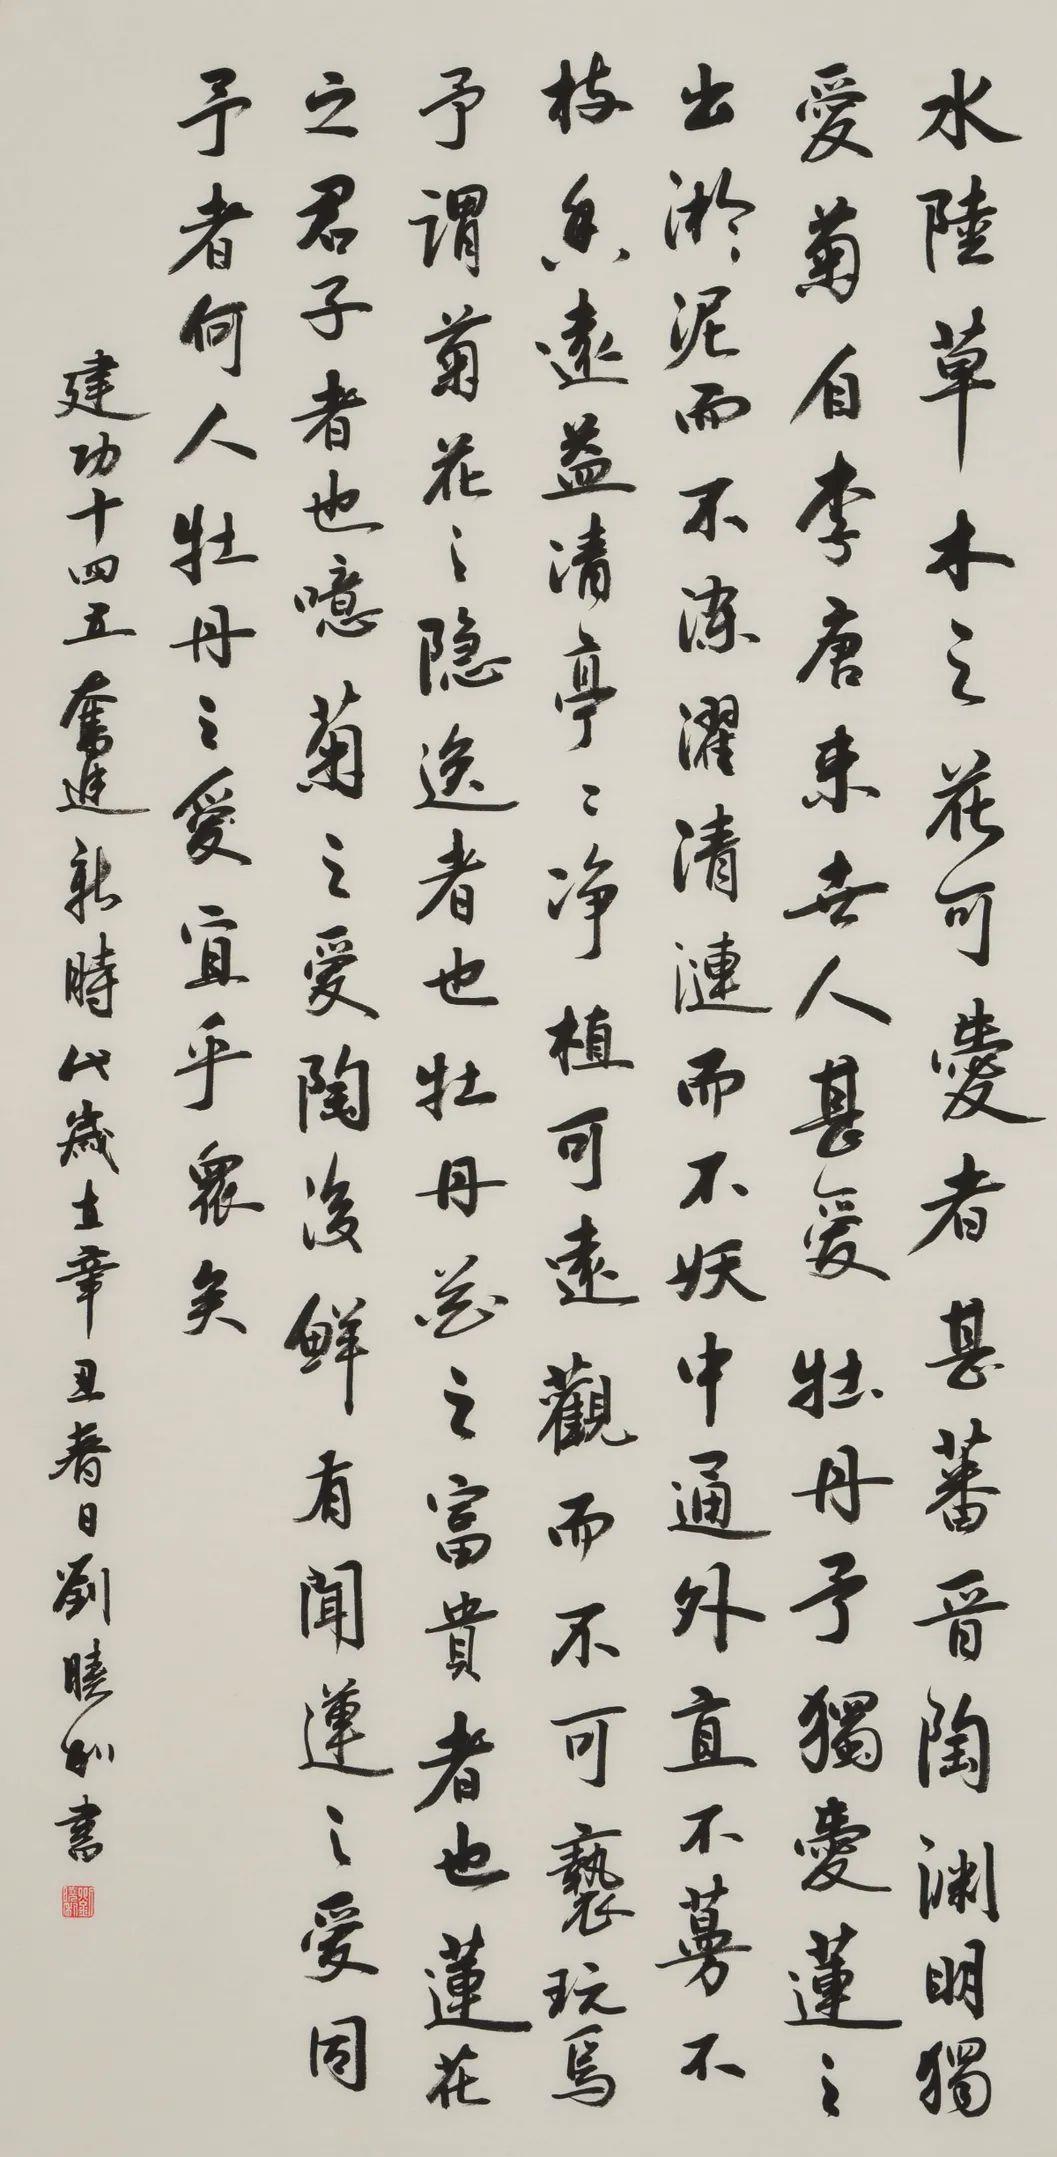 水陸草木之花可愛者甚蕃晋陶渊明獨
愛菊自李唐来世人甚爱牡丹予獨愛蓮之
出淤泥而不染濯清漣而不妖中通外直不蔓不
枝香遠益清亭〻净植可遠觀而不可褻玩焉
予謂菊花之隐逸者也牡丹花之富貴者也蓮花
之君子者也噫菊之愛陶後鮮有聞蓮之愛同
予者何人牡丹之愛宜乎衆矣
建功十四五奮進新時代歲在辛丑春日劉曉書